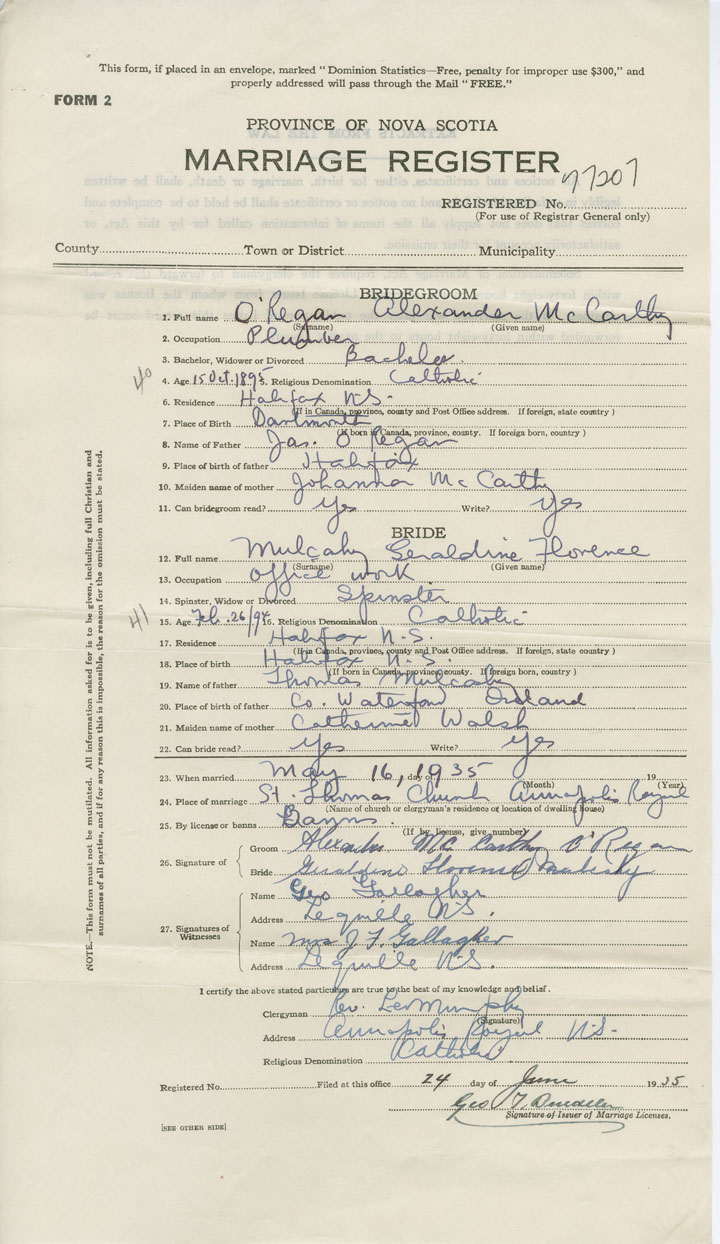 This form, if placed in an envelope, marked "Dominion Statistics—Free, penalty for improper use $300," and
properly addressed will pass through the Mail "FREE."
FORM 2
PROVINCE OF NOVA SCOTIA
MARRIAGE REGISTER
REGISTERED No. 77207
(For use of Registrar General only)
County Town or District Municipality
BRIDEGROOM
1. Full name O'Regan Alexander McCarthy
(Surname) (Given name)
2. Occupation Plumber
3. Bachelor, Widower or Divorced Bachelor
40
4. Age 15 Oct. 1895 5. Religious Denomination Catholic
6. Residence Halifax N.S.
(If in Canada, province, county and Post Office address. If foreign, state country)
7. Place of Birth Dartmouth
(If born in Canada, province, county. If foreign born, country)
8. Name of Father Jas. O'Regan
9. Place of birth of father Halifax
10. Maiden name of mother Johanna McCarthy
11. Can bridegroom read? Yes Write? Yes
BRIDE
12. Full name Mulcahy Geraldine Florence
(Surname) (Given name)
13. Occupation office work
14. Spinster, Widow or Divorced Spinster
41
15. Age Feb. 26/94 16. Religious Denomination Catholic
17. Residence Halifax N.S.
(If in Canada, province, county and Post Office address. If foreign, state country)
18. Place of birth Halifax N.S.
(If born in Canada, province, county. If foreign born, country)
19. Name of father Thomas Mulcahy
20. Place of birth of father Co. Waterford Ireland
21. Maiden name of mother Catherine Walsh
22. Can bride read? Yes Write? Yes
23. When married May 16, day of 1935 19
(Month) (Year)
24. Place of marriage St. Thomas Church Annapolis Royal
(Name of church or clergyman's residence or location of dwelling house)
25. By license or banns Banns.
(If by license, give number)
26. Signature of
Groom Alexander McCarthy O'Regan
Bride Geraldine Florence Mulcahy
27. Signatures of Witnesses
Name Geo Gallagher
Address Lequille N.S.
Name Mrs J. F. Gallagher
Address Lequille N.S.
I certify the above stated particulars are true to the best of my knowledge and belief.
Clergyman Rev. Leo Murphy
(Signature)
Address Annapolis Royal N.S.
Religious Denomination Catholic
Registered No. Filed at this office 24 day of June 1935
Geo T.
Signature of Issuer of Marriage Licenses.
[SEE OTHER SIDE]
NOTE.—This form must not be mutilated. All information asked for is to be given, including full Christian and
surnames of all parties, and if for any reason this is impossible, the reason for the omission must be stated.